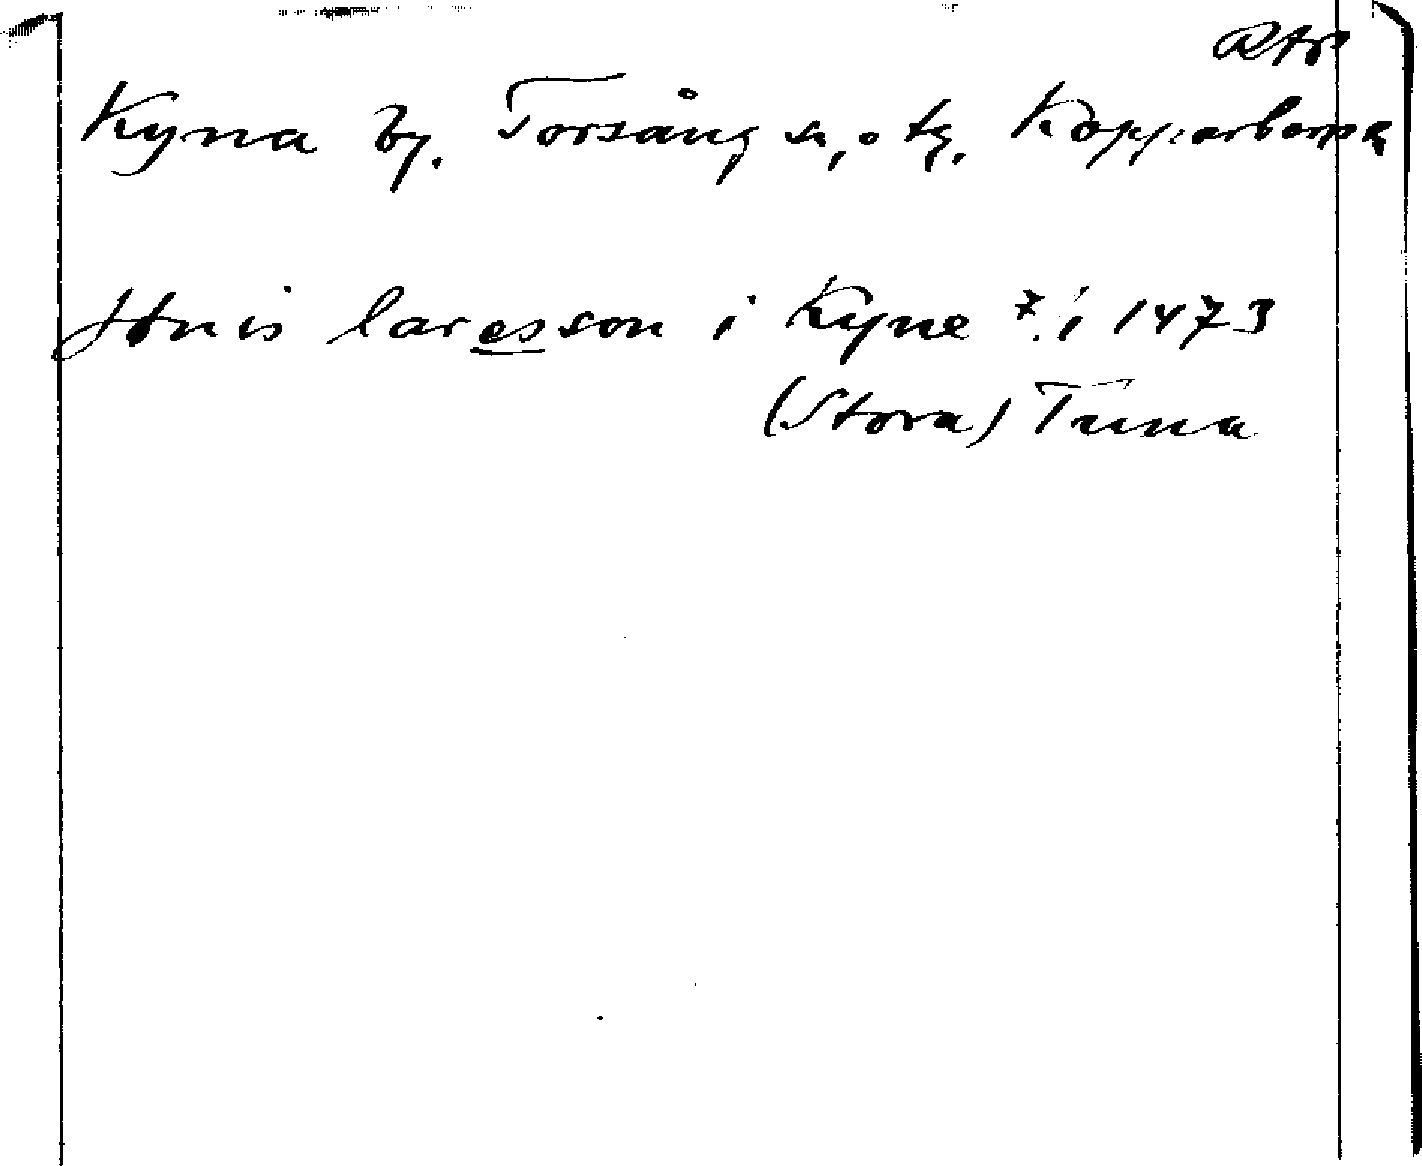 Kyna by. Torsång sn, o tg. Kopparbergs
Jönis laresson i Kyne 7/1 1473
(Stora) Tuna